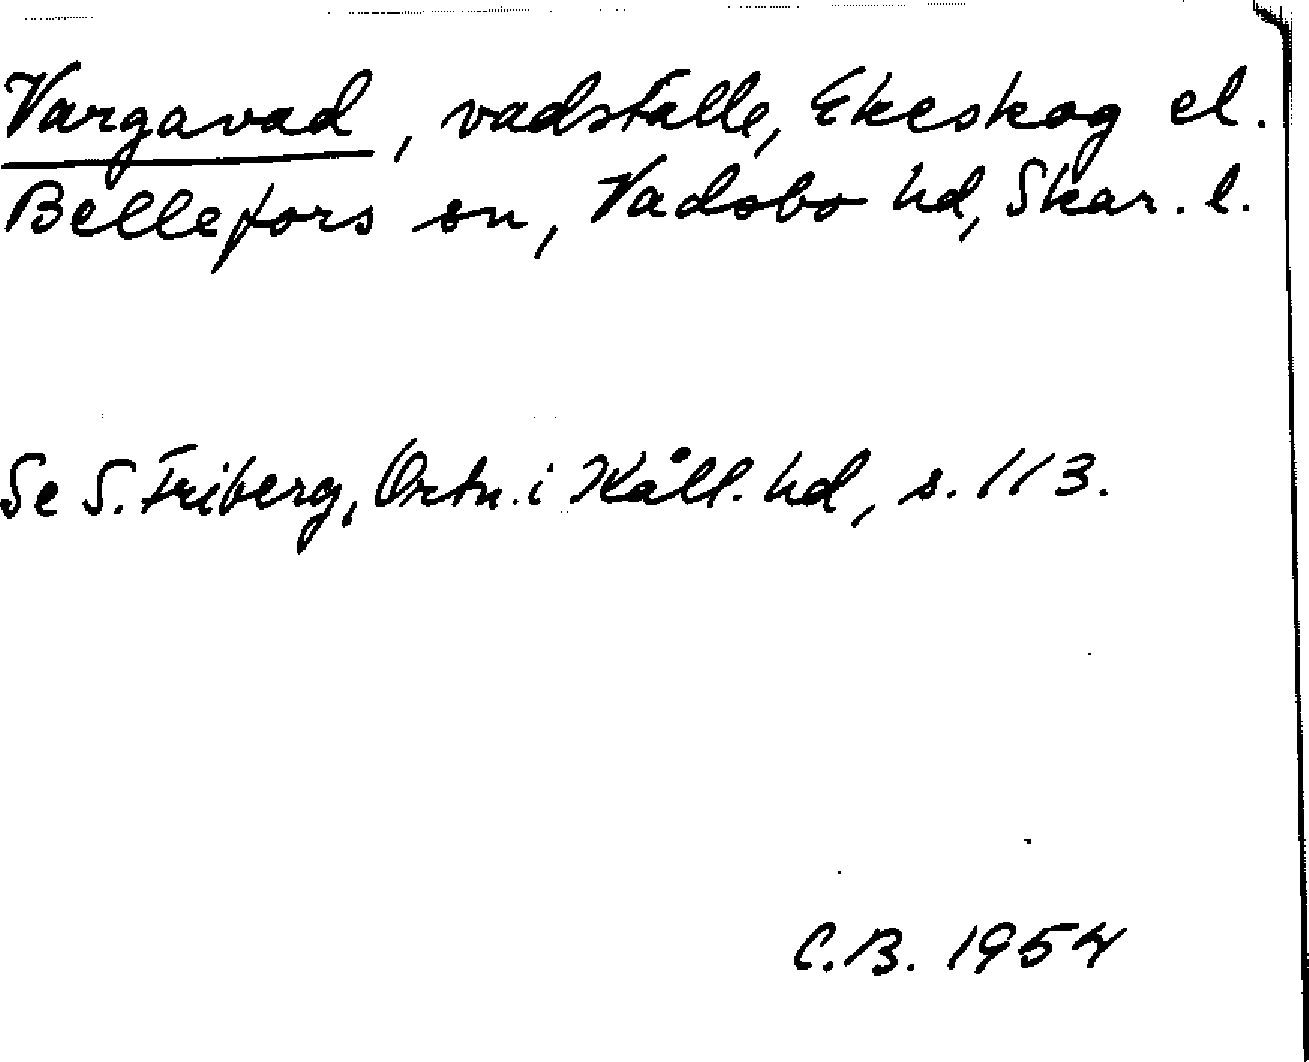 Vargavad, vadställe, Ekeskog el.
Bellefors sn, Vadsbo hd, Skar. l.
Se S. Friberg, Ortn. i Kåll. hd, s. 113.
C.B. 1954